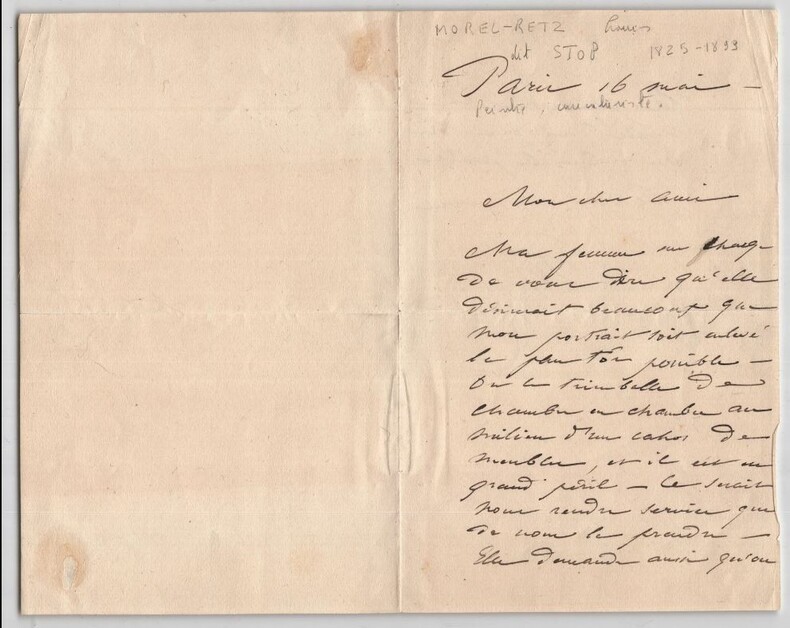 MOREL-RETZ Louis
dit STOP 1825-1899
Paris 16 mai —
Peintre, caricaturiste.
Mon cher ami
Ma femme me charge
de vous dire qu'elle
désirerait beaucoup que
mon portrait soit enlevé
le plus tôt possible —
On le trimballe de
chambre en chambre au
milieu d'un cahos de
meubles, et il est en
grand péril — Ce serait
nous rendre service que
de nous le prendre —
Elle demande aussi qu'on